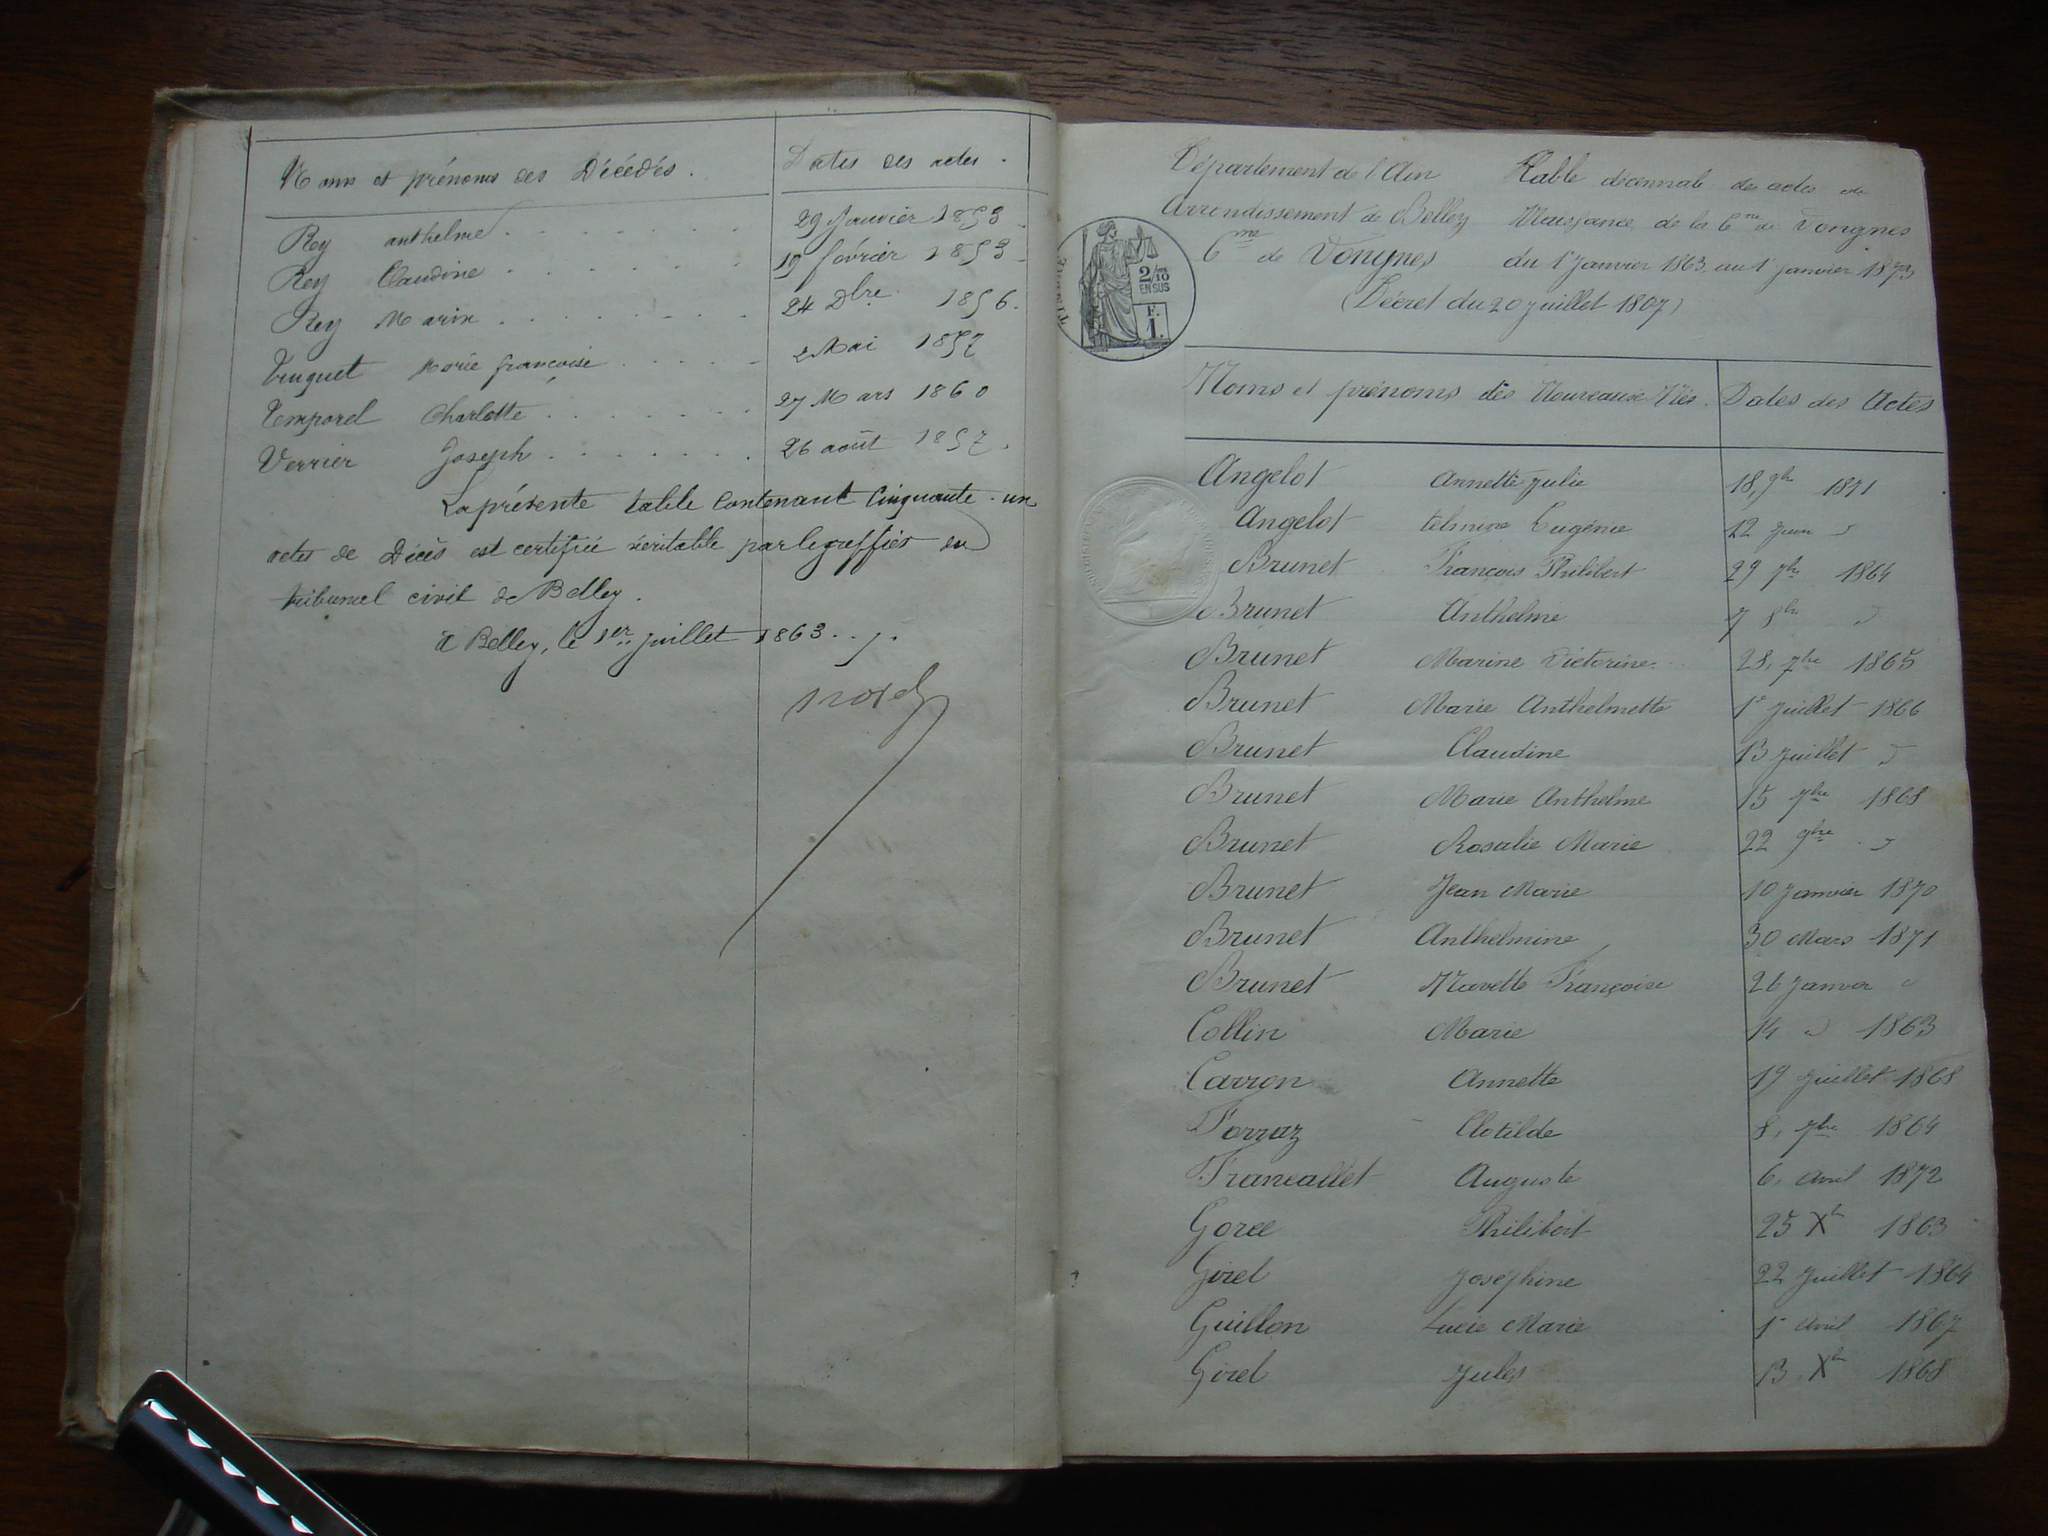 Noms et prénoms des Décédés. Dates des actes.
Rey anthelme 29 Janvier 1853
Rey Claudine 19 février 1853
Rey Marin 24 Dbre 1856.
Truquet Marie françoise 2 Mai 1857
Temporel Charlotte 27 Mars 1860
Verrier Joseph 26 août 1857.
La présente table contenant Cinquante-un
actes de Décès est certifiée véritable par le greffier du
tribunal civil de Belley.
à Belley, le 1er juillet 1863.
Département de l'Ain
Arrondissement de Belley
Cne de Vongnes
Table décennale de actes de
Naissance de la Cne de Vongnes
du 1er Janvier 1863 au 1er janvier 1873
(Décret du 20 juillet 1807)
2/10
EN SUS
F.
1.
Noms et prénoms des Nouveaux Nés. Dates des Actes
Angelot Annette Julie 18, 9bre 1871
Angelot Eugénie 12 Juin "
Brunet François Philibert 29 7bre 1864
Brunet Anthelme 7 8bre "
Brunet Marine Victorine 28, 7bre 1865
Brunet Marie Anthelmette 1er Juillet 1866
Brunet Claudine 13 Juillet "
Brunet Marie Anthelme 15 7bre 1868
Brunet Rosalie Marie 22 9bre "
Brunet Jean Marie 10 Janvier 1870
Brunet Anthelmine 30 Mars 1871
Brunet Françoise 26 Janvier "
Collin Marie 14 " 1863
Carron Annette 19 Juillet 1868
Forraz Clotilde 8, 7bre 1864
Francallet Auguste 6, Avril 1872
Philibert 25 Xb 1863
Girel Joséphine 22 Juillet 1864
Guillon Lucie Marie 1er Avril 1867
Girel Jules 13 Xb 1868